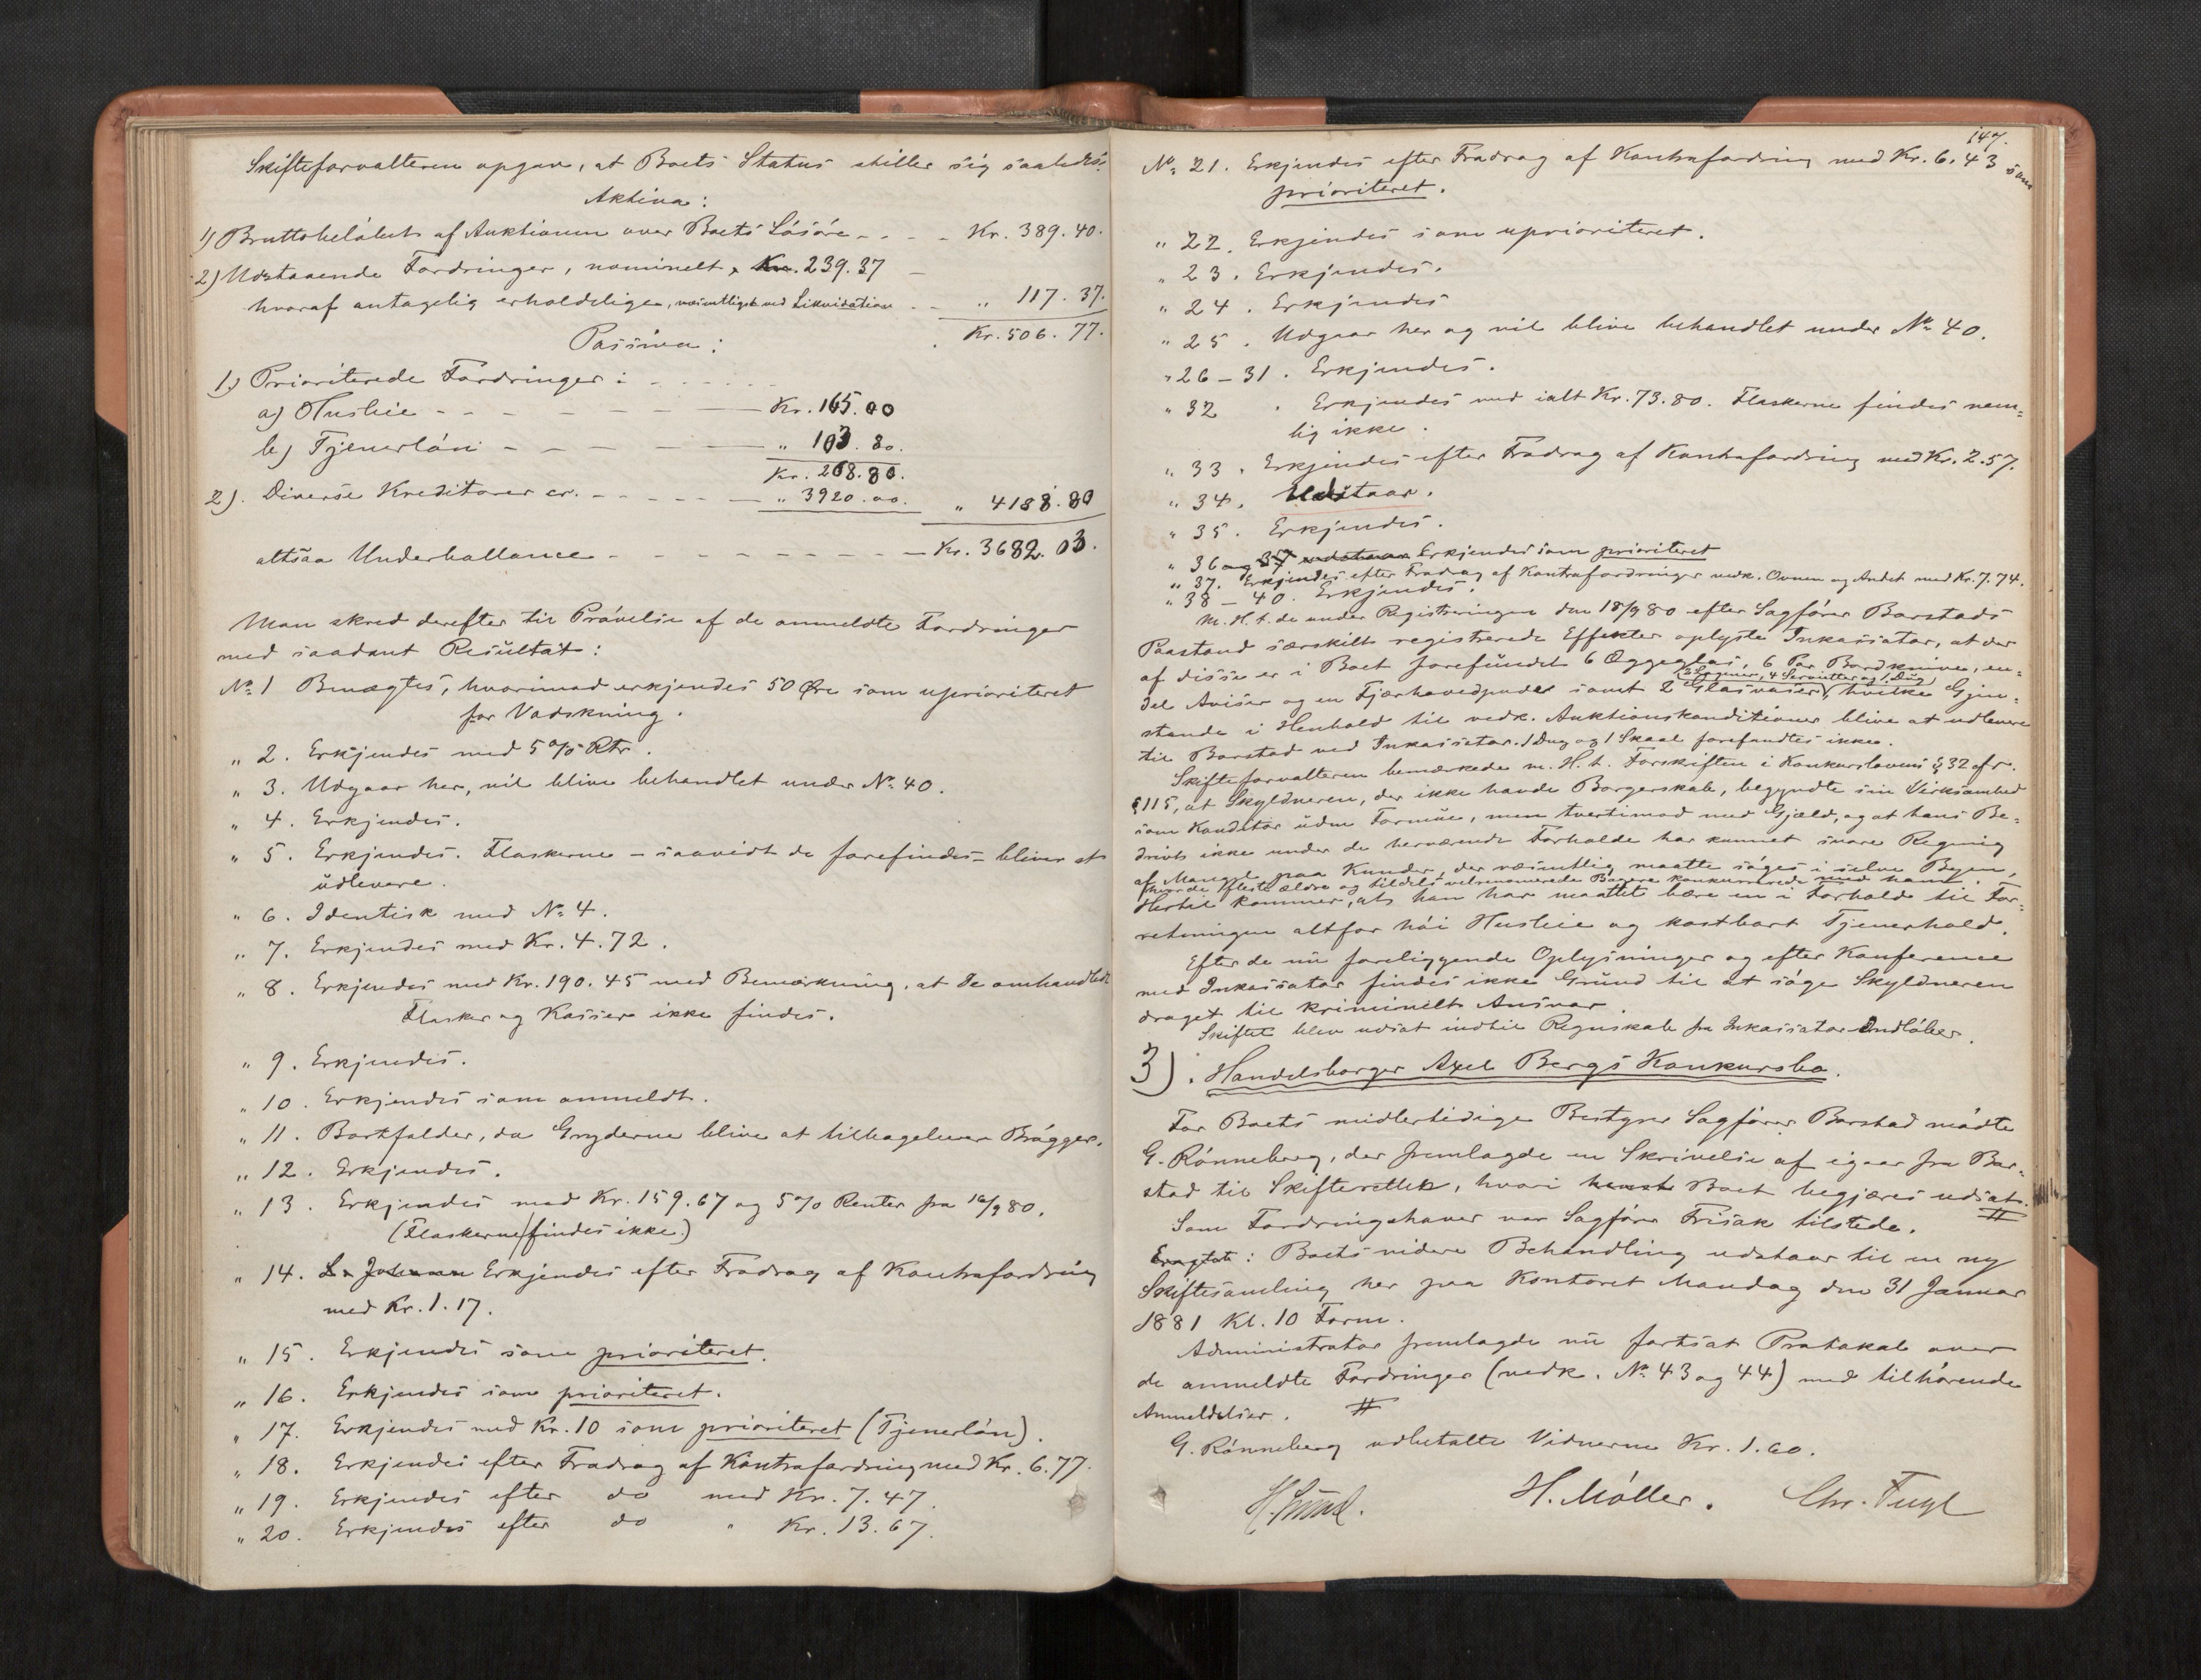 Skifteforvalteren opgav, at Boets Status stiller sig saaledes:
Aktiva:
1) Bruttobeløbet af Auktionen over Boets Løsøre - - - - Kr. 389.40.
2) Udstaaende Fordringer, nominelt, Kr. 239.37 -
hvoraf antagelig erholdelige, væsentligst ved Likvidation - - " 117.37.
Kr. 506.77.
Passiva:
1) Prioriterede Fordringer: - - - - - -
a) Husleie - - - - - - Kr. 165.00
b) Tjenerløn - - - - - " 103.80.
Kr. 268.80.
2). Diverse Kreditorer cr. - - - - - " 3920.00. " 4188.80
altsaa Underballance - - - - - - - - - Kr. 3682.03.
Man skred derefter til Prøvelse af de anmeldte Fordringer
med saadant Resultat:
No 1 Benægtes, hvorimod erkjendes 50 Øre som uprioriteret
for Vadskning.
" 2. Erkjendes med 5% Rtr.
" 3. Udgaar her, vil blive behandlet under No 40.
" 4. Erkjendes.
" 5. Erkjendes. Flaskerne - saavidt de forefindes - bliver at
udlevere.
" 6. Identisk med No 4.
" 7. Erkjendes med Kr. 4.72.
" 8. Erkjendes med Kr. 190.45 med Bemærkning, at de omhandlede
Flasker og Kasser ikke findes.
" 9. Erkjendes.
" 10. Erkjendes som anmeldt.
" 11. Bortfalder, da Gryderne blive at tilbagelevere Brøgger.
" 12. Erkjendes.
" 13. Erkjendes med Kr. 159.67 og 5% Renter fra 16/9 80.
(Flaskerne findes ikke.)
" 14. Erkjendes efter Fradrag af Kontrafordring
med Kr. 1.17.
" 15. Erkjendes som prioriteret.
" 16. Erkjendes som prioriteret.
" 17. Erkjendes med Kr. 10 som prioriteret (Tjenerløn).
" 18. Erkjendes efter Fradrag af Kontrafordring med Kr. 6.77.
" 19. Erkjendes efter do med Kr. 7.47.
" 20. Erkjendes efter do " Kr. 13.67.
147.
No 21. Erkjendes efter Fradrag af Kontrafordring med Kr. 6.43 som
prioriteret.
" 22. Erkjendes som uprioriteret.
" 23. Erkjendes.
" 24. Erkjendes
" 25. Udgaar her og vil blive behandlet under No 40.
" 26-31. Erkjendes.
" 32. Erkjendes med ialt Kr. 73.80. Flaskerne findes nem=
lig ikke.
" 33. Erkjendes efter Fradrag af Kontrafordring med Kr. 2.57.
" 34. Udstaar.
" 35. Erkjendes.
" 36 og 37 udstaar Erkjendes som prioriteret
" 37. Erkjendes efter Fradrag af Kontrafordringer vedk. Ovnen og Andet med Kr. 7.74.
" 38-40. Erkjendes.
M. H. t. de under Registreringen den 18/9 80 efter Sagfører Barstads
Paastand særskilt registrerede Effekter oplyste Inkassator, at der
af disse er i Boet forefundet 6 Æggeglas, 6 Par Bordknive, en=
del Aviser og en Fjærhovedpude samt 2 Glasvaser, hvilke Gjen=
4 Servietter og 1 Dug
stande i Henhold til vedk. Auktionskonditioner blive at udlevere
til Barstad ved Inkassator. 1 Dug og 1 Skaal forefandtes ikke.
Skifteforvalteren bemærkede m. H. t. Forskriften i Konkurslovens § 32 cfr.
§ 115, at Skyldneren, der ikke havde Borgerskab, begyndte sin Virksomhed
som Konditor uden Formue, men tvertimod med Gjæld, og at hans Be=
drivt ikke under de herværende Forholde har kunnet svare Regning
af Mangel paa Kunder, der væsentlig maatte søges i selve Byen,
hvor de fleste ældre og tildels velrenomerede Bagere konkurrerede med ham.
Hertil kommer, at han har maattet bære en i Forhold til For=
retningen altfor høi Husleie og kostbart Tjenerhold.
Efter de nu foreliggende Oplysninger og efter Konference
med Inkassator findes ikke Grund til at søge Skyldneren
draget til kriminelt Ansvar.
Skiftet blev udsat indtil Regnskab fra Inkassator indløber.
3). Handelsborger Axel Bergs Konkursbo.
For Boets midlertidige Bestyrer Sagfører Barstad mødte
G. Rønneberg, der fremlagde en Skrivelse af igaar fra Bar=
stad til Skifteretten, hvori Boet begjæres udsat. #
Som Fordringshaver var Sagfører Frisak tilstede.
Eragtet: Boets videre Behandling udstaar til en ny
Skiftesamling her paa Kontoret Mandag den 31 Januar
1881 Kl. 10 Form.
Administrator fremlagde nu fortsat Protokol over
de anmeldte Fordringer (vedk. No 43 og 44) med tilhørende
Anmeldelser. #
G. Rønneberg udbetalte Vidnerne Kr. 1.60.
H. Møller. Chr. Fugl